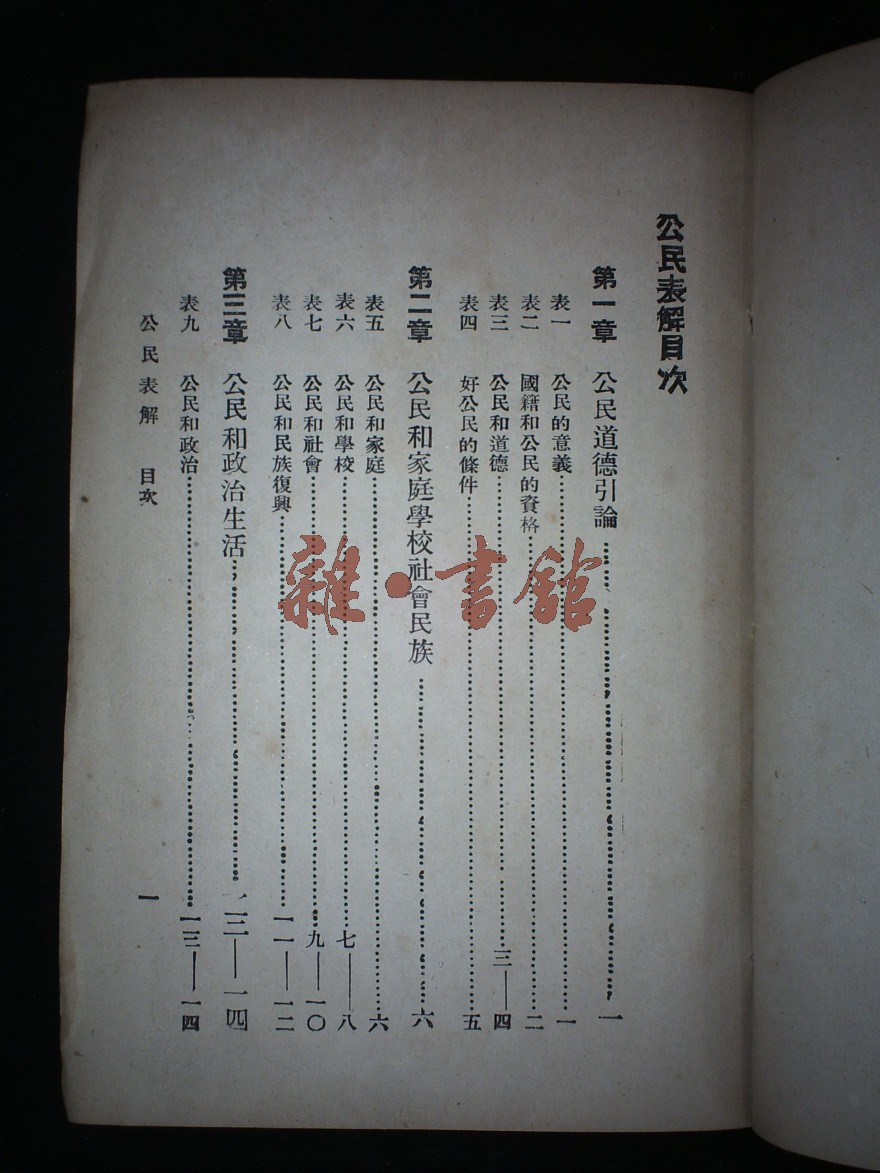 公民表解目次
第一章 公民道德引論……一
表一 公民的意義……一
表二 國籍和公民的資格……二
表三 公民和道德……三——四
表四 好公民的條件……五
第二章 公民和家庭學校社會民族……六
表五 公民和家庭……六
表六 公民和學校……七——八
表七 公民和社會……九——一〇
表八 公民和民族復興……一一——一二
第三章 公民和政治生活……一三——一四
表九 公民和政治……一三——一四
公民表解 目次
一
雜·書館